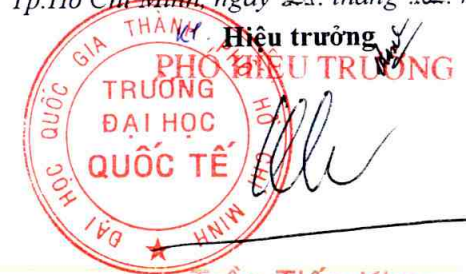 Tp.Hồ Chí Minh, ngày 21. tháng
KT. Hiệu trưởng
PHÓ HIỆU TRƯỞNG
ĐẠI HỌC QUỐC GIA THÀNH PHỐ HỒ CHÍ MINH
TRƯỜNG
ĐẠI HỌC
QUỐC TẾ